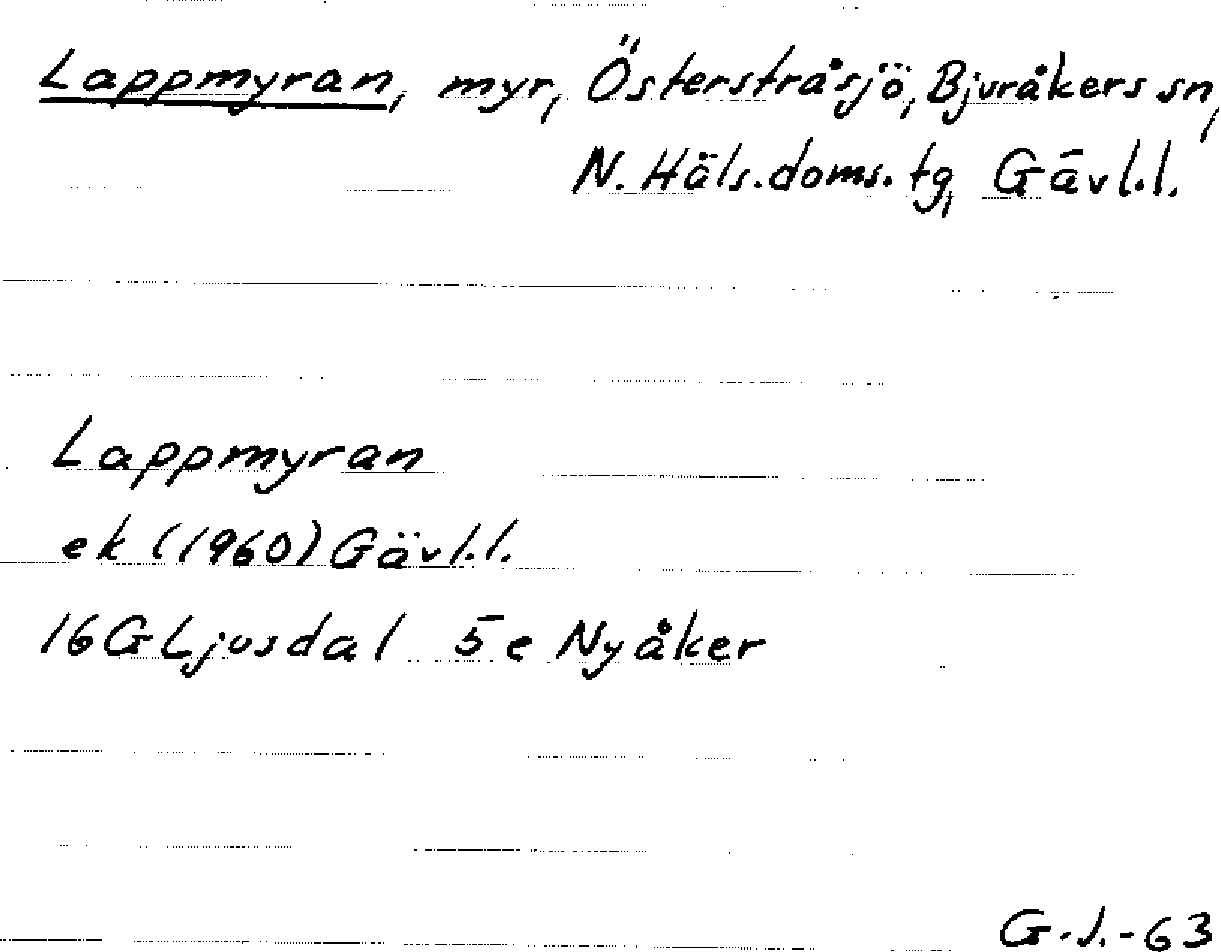 Lappmyran, myr, Österstråsjö, Bjuråkers sn,
N. Häls. doms. tg, Gävl.l.
Lappmyran
ek (1960) Gävl.l.
16G Ljusdal 5e Nyåker
G.J.-63